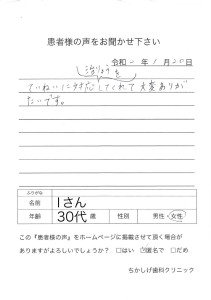 患者様の声をお聞かせ下さい
令和二年1月20日
治りょうを
ていねいに対応してくれて大変ありが
たいです。
ふりがな
名前 Iさん
年齢 30代 歳 性別 男性・女性
この『患者様の声』をホームページに掲載させて頂く場合が
ありますがよろしいでしょうか? □はい ☑匿名で □だめ
ちかしげ歯科クリニック